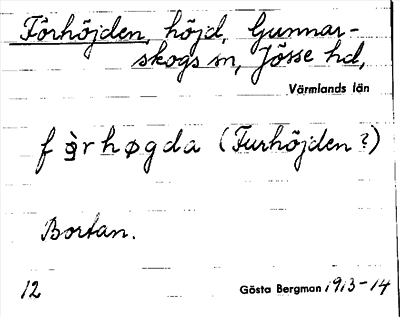 Förhöjden, höjd, Gunnar-
skogs sn, Jösse hd,
Värmlands län
f r h ø g d a (Furhöjden?)
Bortan.
12
Gösta Bergman 1913-14